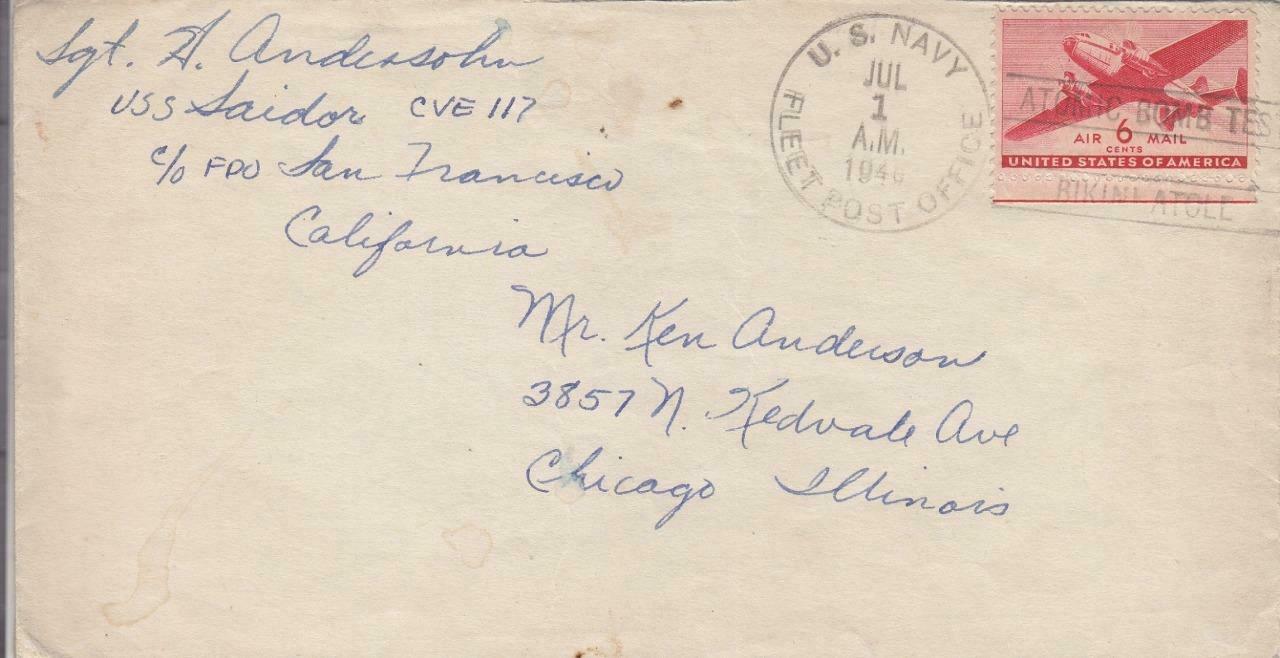 Sgt. H. Andersohn
USS Saidor CVE 117
c/o FPO San Francisco
California
U. S. NAVY
JUL
1
A.M.
1946
FLEET POST OFFICE
ATOMIC BOMB TEST
BIKINI ATOLL
AIR 6 MAIL
CENTS
UNITED STATES OF AMERICA
Mr. Ken Anderson
3857 N. Kedvale Ave
Chicago Illinois